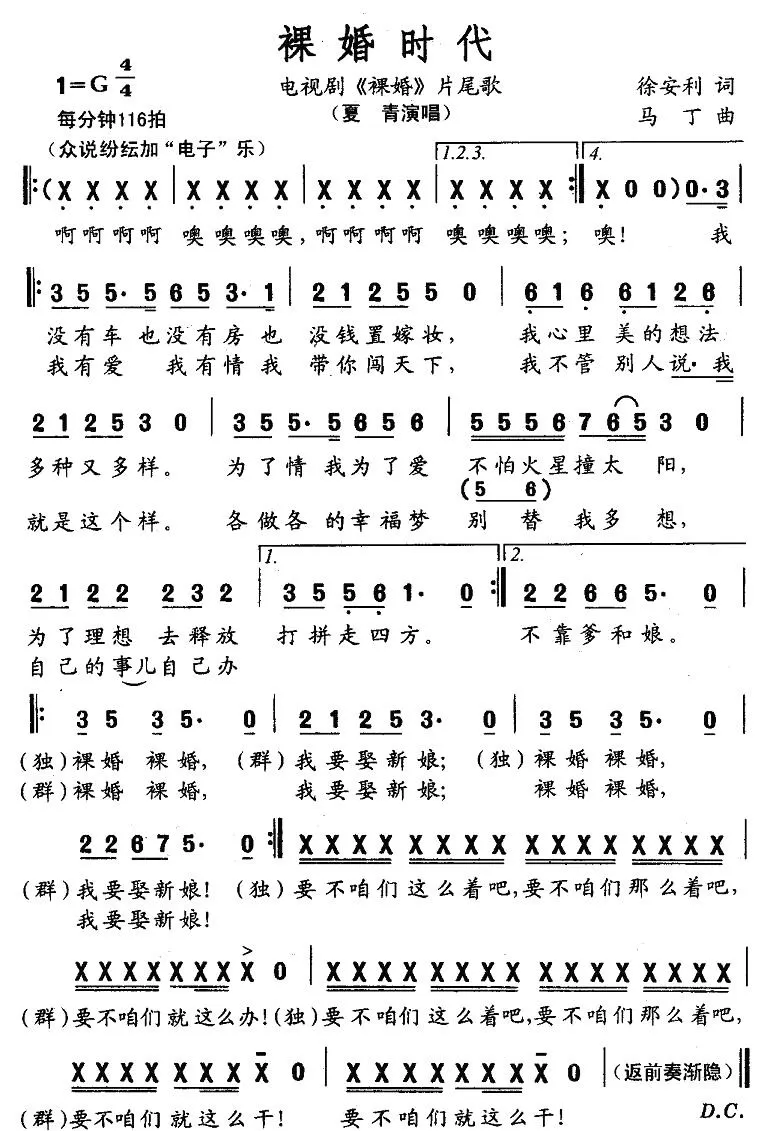 裸婚时代
1=G 4/4 电视剧《裸婚》片尾歌 徐安利 词
每分钟116拍 (夏 青演唱) 马 丁 曲
(众说纷纭加“电子”乐) 1.2.3. 4.
‖:(X X X X | X X X X | X X X X | X X X X :‖ X 0 0) 0· 3 |
啊啊啊啊 噢噢噢噢,啊啊啊啊 噢噢噢噢; 噢! 我
‖: 3 5 5· 5 6 5 3· 1 | 2 1 2 5 5 0 | 6 1 6 6 1 2 6 |
没有车 也没有房也 没钱置嫁妆, 我心里 美的想法
我有爱 我有情我 带你闯天下, 我不管 别人说·我
2 1 2 5 3 0 | 3 5 5· 5 6 5 6 | 5 5 5 6 7 6 5 3 0 |
多种又多样。 为了情 我为了爱 不怕火星撞太 阳,
(5 6)
就是这个样。 各做各 的幸福梦 别 替 我多 想,
1. 2.
2 1 2 2 2 3 2 | 3 5 5 6 1· 0 :‖ 2 2 6 6 5· 0 |
为了理想 去释放 打拼走四方。 不靠爹和娘。
自己的事儿自己办
‖: 3 5 3 5· 0 | 2 1 2 5 3· 0 | 3 5 3 5· 0 |
(独)裸婚 裸婚, (群)我要娶新娘; (独)裸婚 裸婚,
(群)裸婚 裸婚, 我要娶新娘; 裸婚 裸婚,
2 2 6 7 5· 0 :‖ X X X X X X X X X X X X X X X X |
(群)我要娶新娘! (独)要不咱们这么着吧,要不咱们那么着吧,
我要娶新娘!
>
X X X X X X X X 0 | X X X X X X X X X X X X X X X X |
(群)要不咱们就这么办!(独)要不咱们这么着吧,要不咱们那么着吧,
X X X X X X X X 0 | X X X X X X X X 0 | (返前奏渐隐) ‖
(群)要不咱们就这么干! 要不咱们就这么干! D.C.